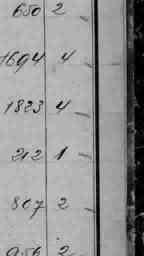 650 2
1694 4
1823 4
212 1
807 2
956 2